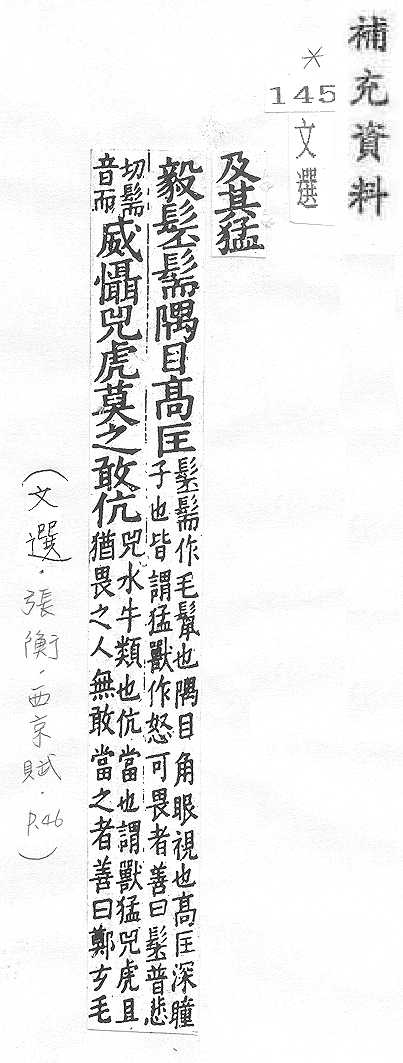 補充資料
*
145
文選
及其猛
毅髬髵隅目高匡
髬髵作毛鬣也隅目角眼視也高匡深瞳
子也皆謂猛獸作怒可畏者善曰髬普悲
切髵
音而
威懾兕虎莫之敢伉
兕水牛類也伉當也謂獸猛兕虎且
猶畏之人無敢當之者善曰鄭玄毛
(文選·張衡·西京賦·P.46)